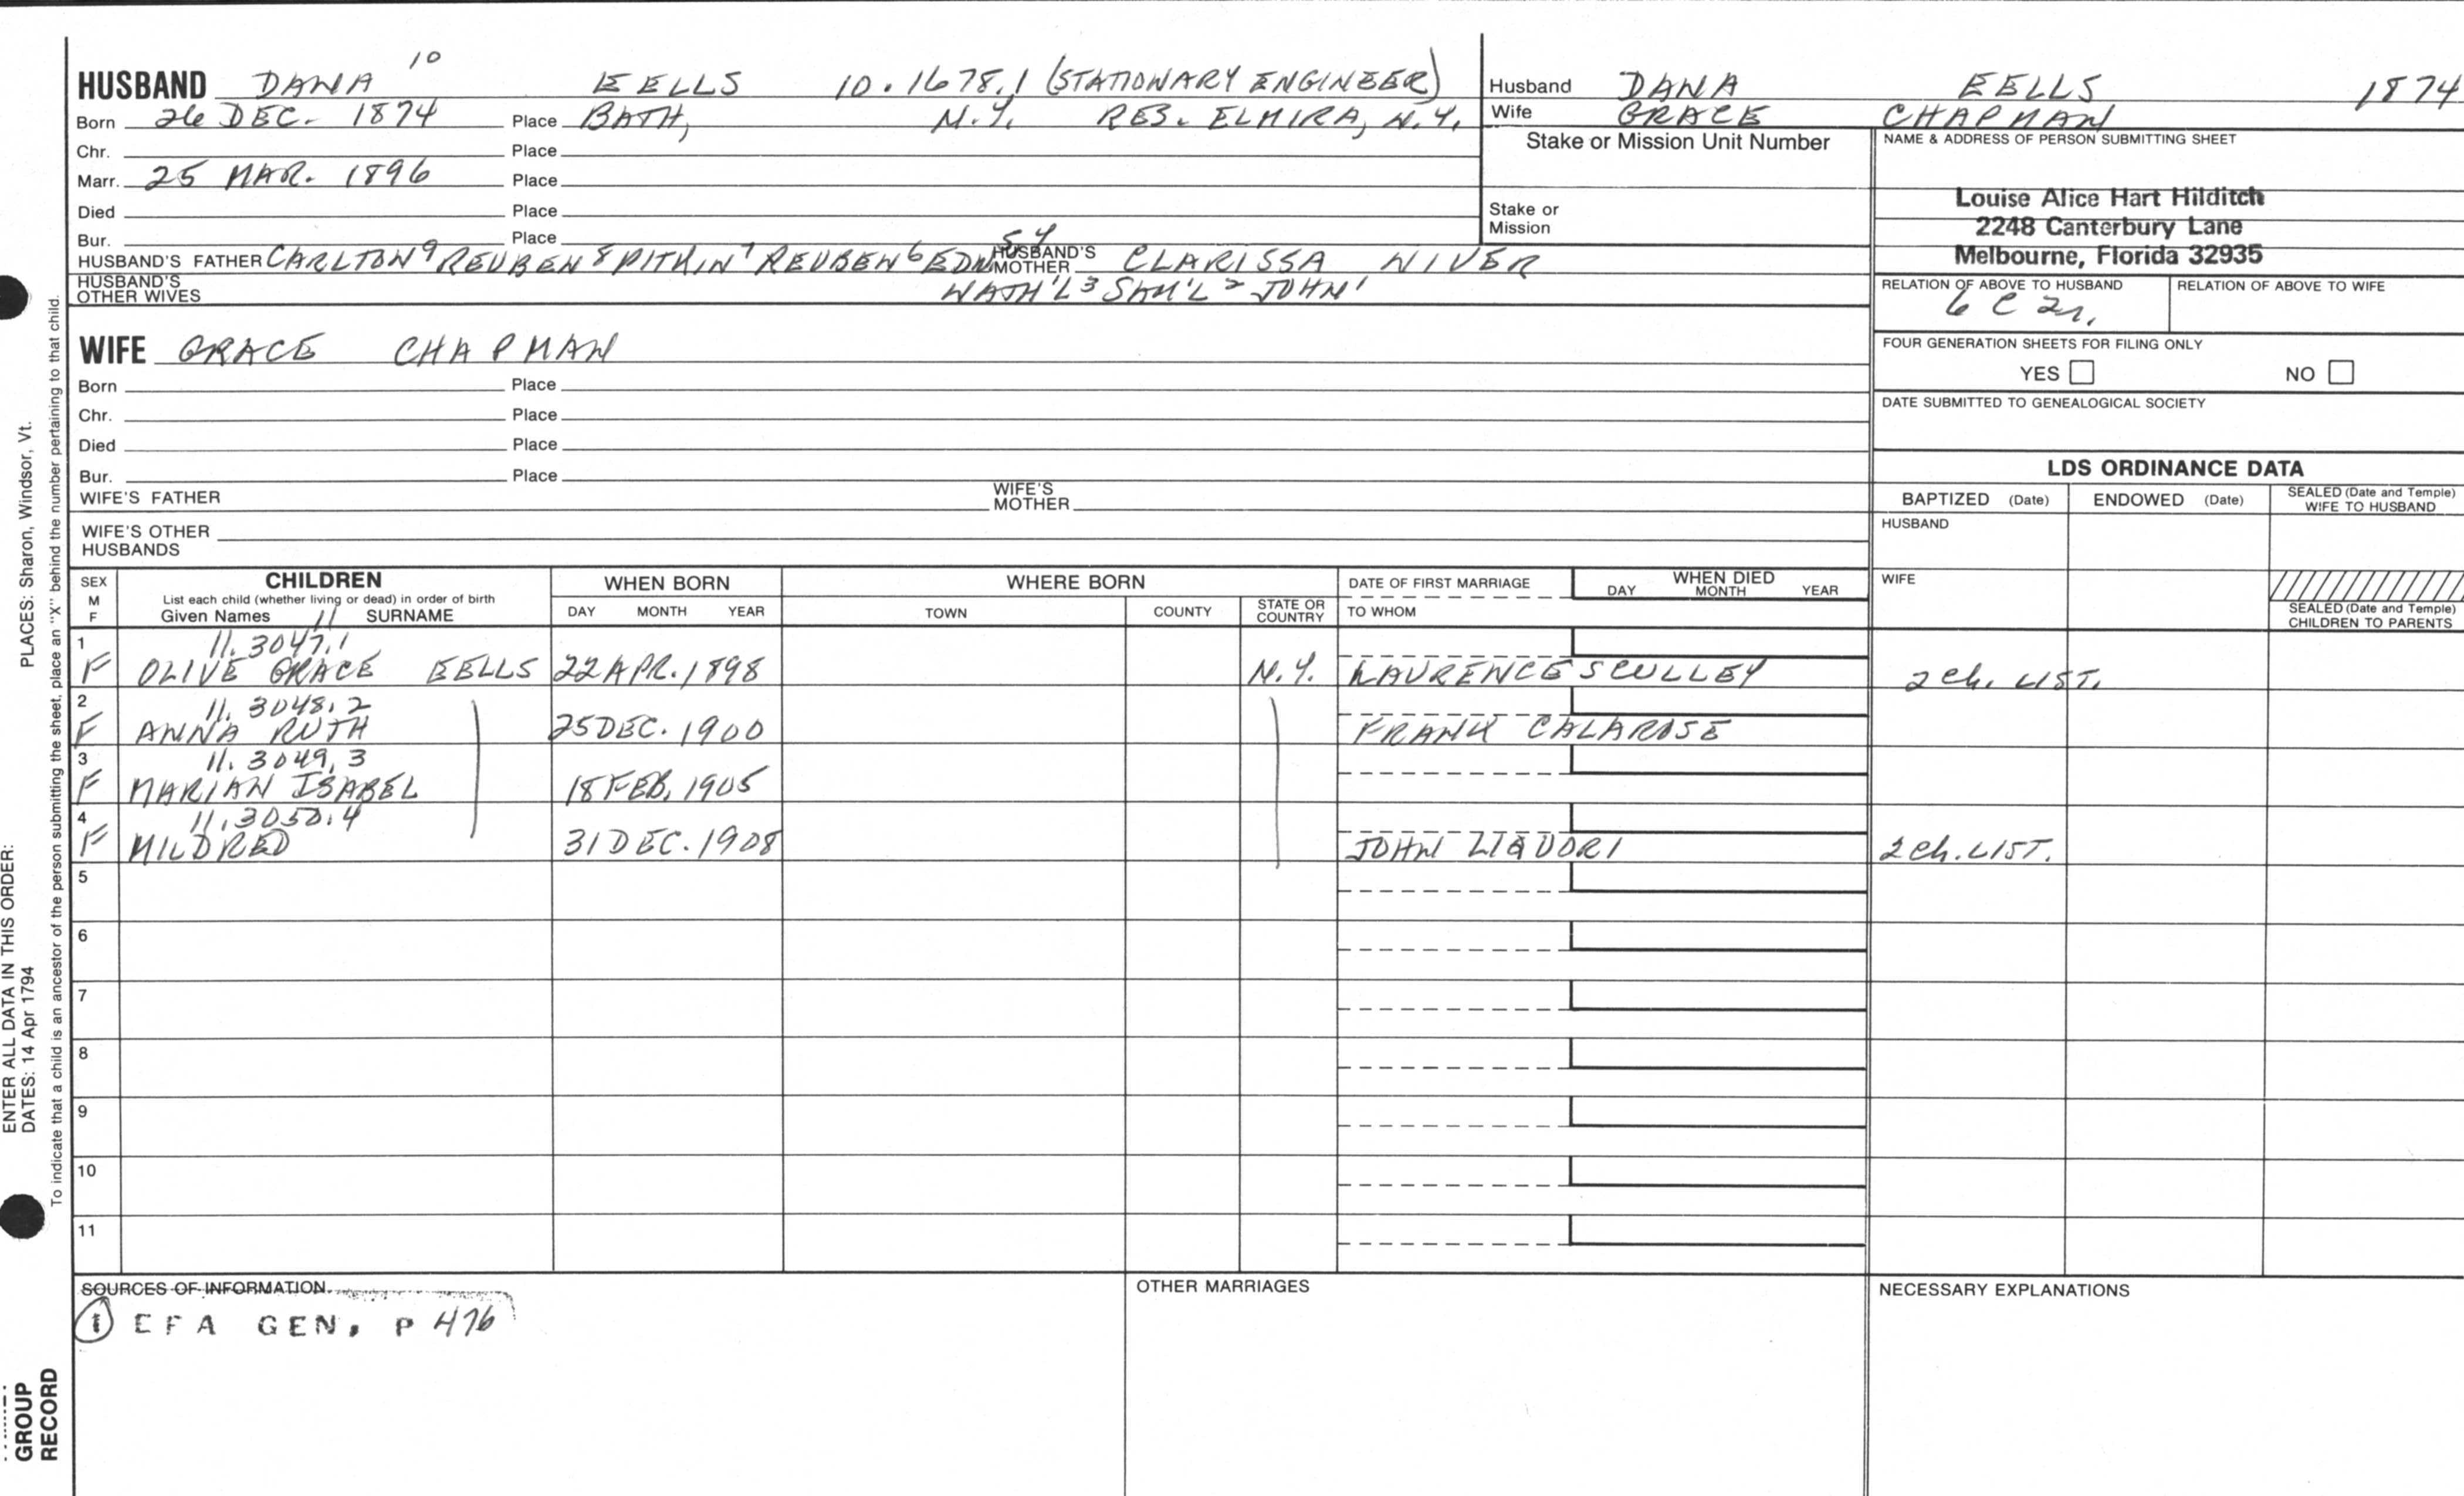 10
HUSBAND DANA EELLS 10.1678.1 (STATIONARY ENGINEER)
Born 26 DEC. 1874 Place BATH, N.Y. RES. ELMIRA, N.Y.
Chr. Place
Marr. 25 MAR. 1896 Place
Died Place
Bur. Place
5 4
HUSBAND'S FATHER CARLTON 9 REUBEN 8 PITKIN 7 REUBEN 6 EDW HUSBAND'S MOTHER CLARISSA NIVER
HUSBAND'S OTHER WIVES NATH'L 3 SAM'L 2 JOHN 1
Husband DANA EELLS 1874
Wife GRACE CHAPMAN
Stake or Mission Unit Number
Stake or
Mission
NAME & ADDRESS OF PERSON SUBMITTING SHEET
Louise Alice Hart Hilditch
2248 Canterbury Lane
Melbourne, Florida 32935
RELATION OF ABOVE TO HUSBAND RELATION OF ABOVE TO WIFE
6 C 2r.
FOUR GENERATION SHEETS FOR FILING ONLY
YES NO
DATE SUBMITTED TO GENEALOGICAL SOCIETY
WIFE GRACE CHAPMAN
Born Place
Chr. Place
Died Place
Bur. Place
WIFE'S FATHER WIFE'S MOTHER
WIFE'S OTHER
HUSBANDS
LDS ORDINANCE DATA
BAPTIZED (Date) ENDOWED (Date) SEALED (Date and Temple) WIFE TO HUSBAND
HUSBAND
WIFE
SEALED (Date and Temple)
CHILDREN TO PARENTS
SEX
M
F
CHILDREN
List each child (whether living or dead) in order of birth
Given Names 11 SURNAME
WHEN BORN
DAY MONTH YEAR
WHERE BORN
TOWN COUNTY STATE OR COUNTRY
DATE OF FIRST MARRIAGE
TO WHOM
WHEN DIED
DAY MONTH YEAR
1 11.3047.1
F OLIVE GRACE EELLS 22 APR. 1898 N.Y. LAURENCE SCULLEY 2 Ch. LIST.
2 11.3048.2
F ANNA RUTH 25 DEC. 1900 FRANK CALAROSE
3 11.3049.3
F MARIAN ISABEL 18 FEB. 1905
4 11.3050.4
F MILDRED 31 DEC. 1908 JOHN LIQUORI 2 Ch. LIST.
5
6
7
8
9
10
11
SOURCES OF INFORMATION
1 EFA GEN. P 476
OTHER MARRIAGES
NECESSARY EXPLANATIONS
ENTER ALL DATA IN THIS ORDER:
DATES: 14 Apr 1794 PLACES: Sharon, Windsor, Vt.
To indicate that a child is an ancestor of the person submitting the sheet, place an "X" behind the number pertaining to that child.
GROUP
RECORD